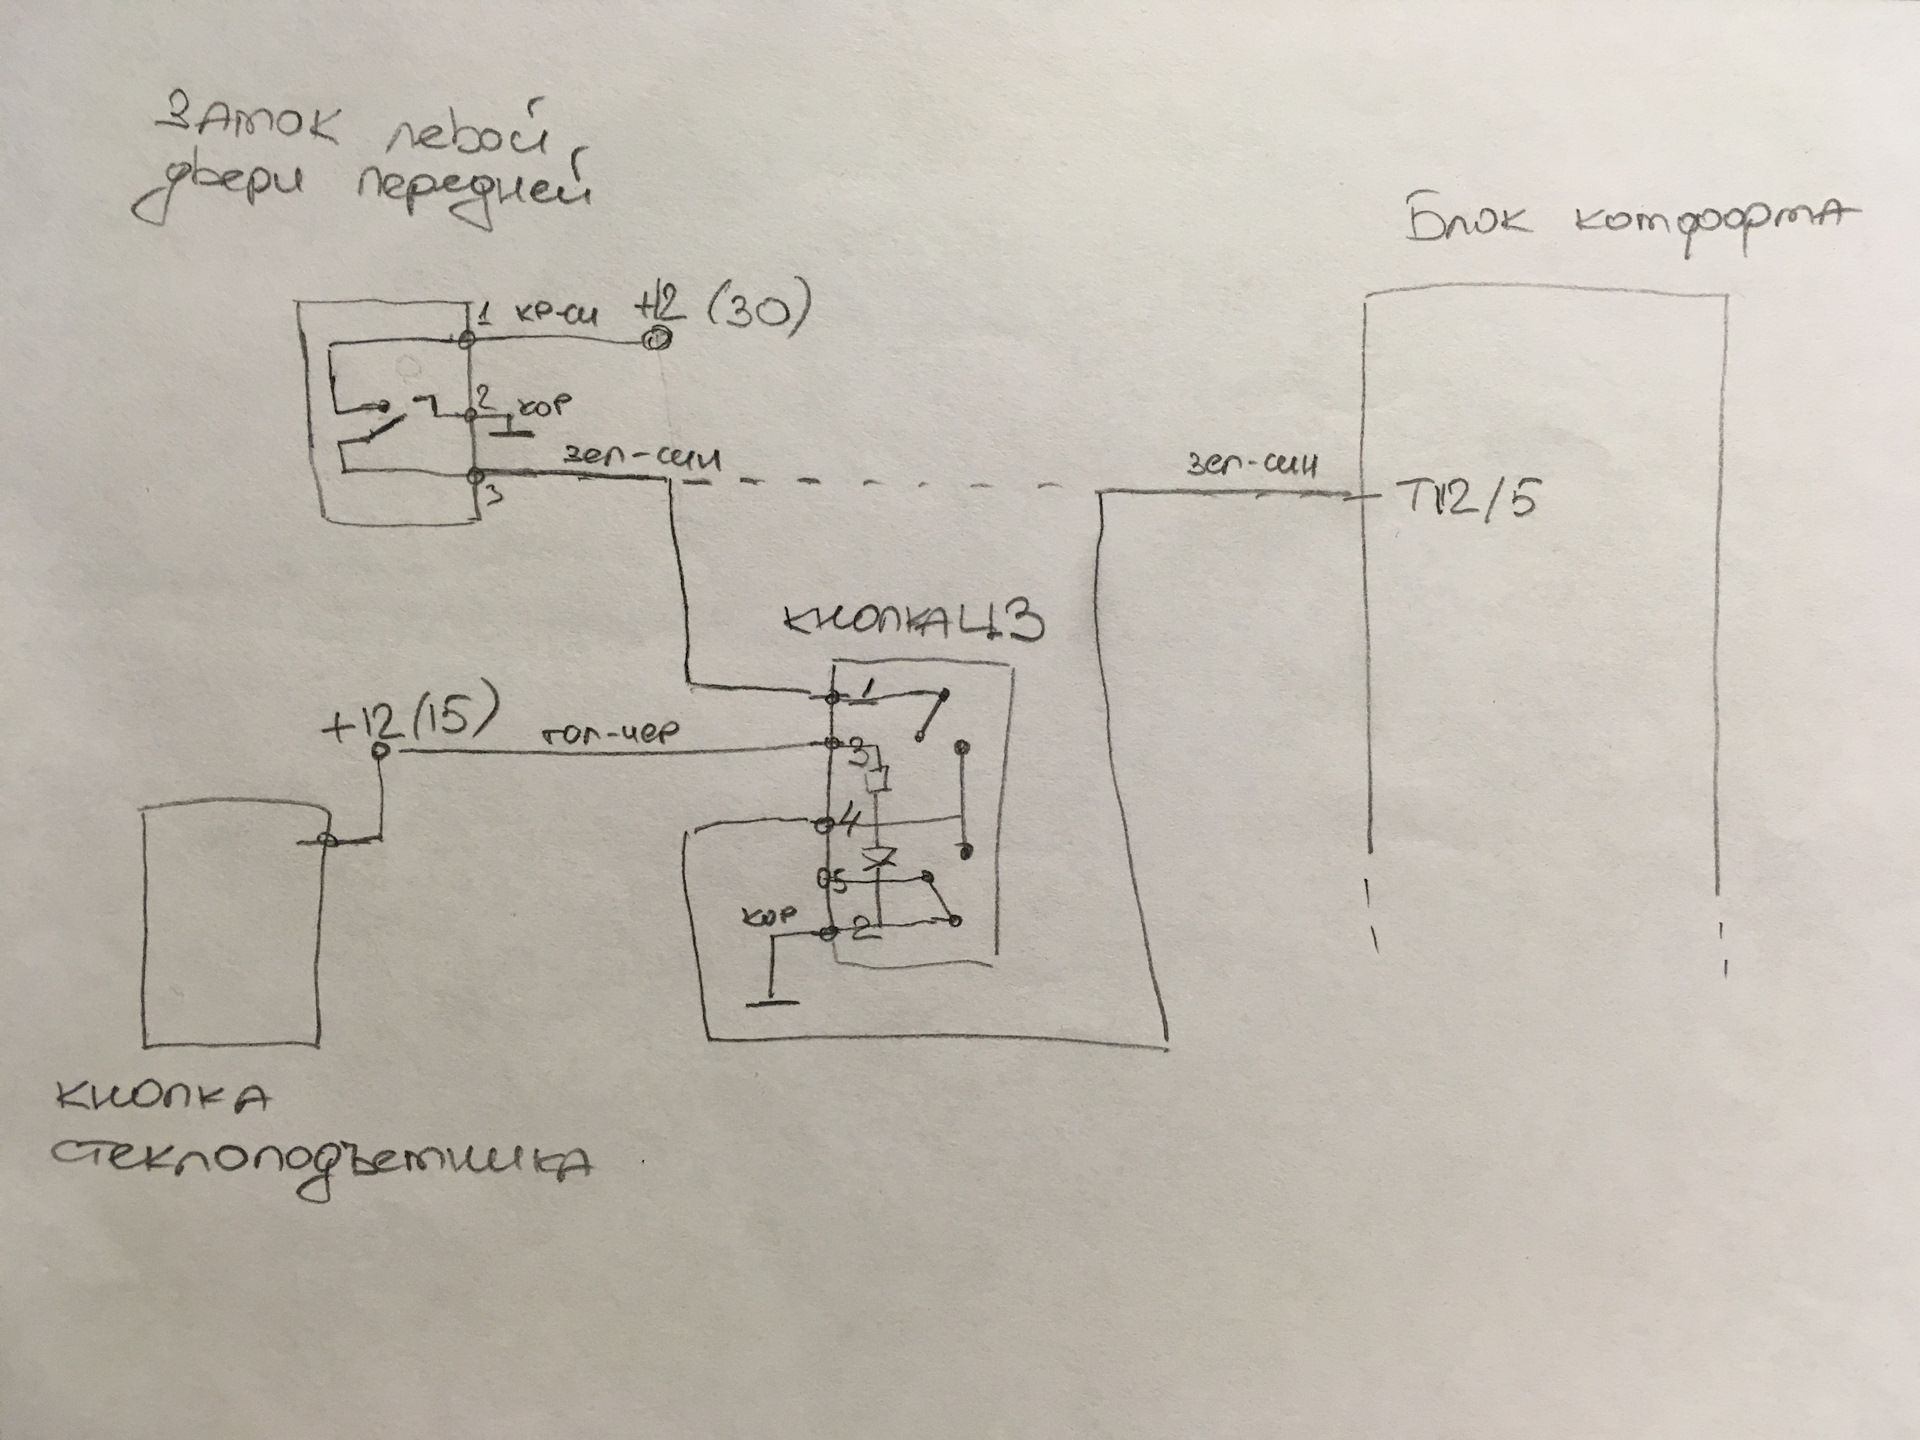 Замок левой
двери передней
Блок комфорта
1 кр-си +12 (30)
2 кор
зел-син
3
зел-син
Т12/5
кнопка ЦЗ
+12 (15)
гол-чер
1
3
4
5
кор
2
кнопка
стеклоподъемника